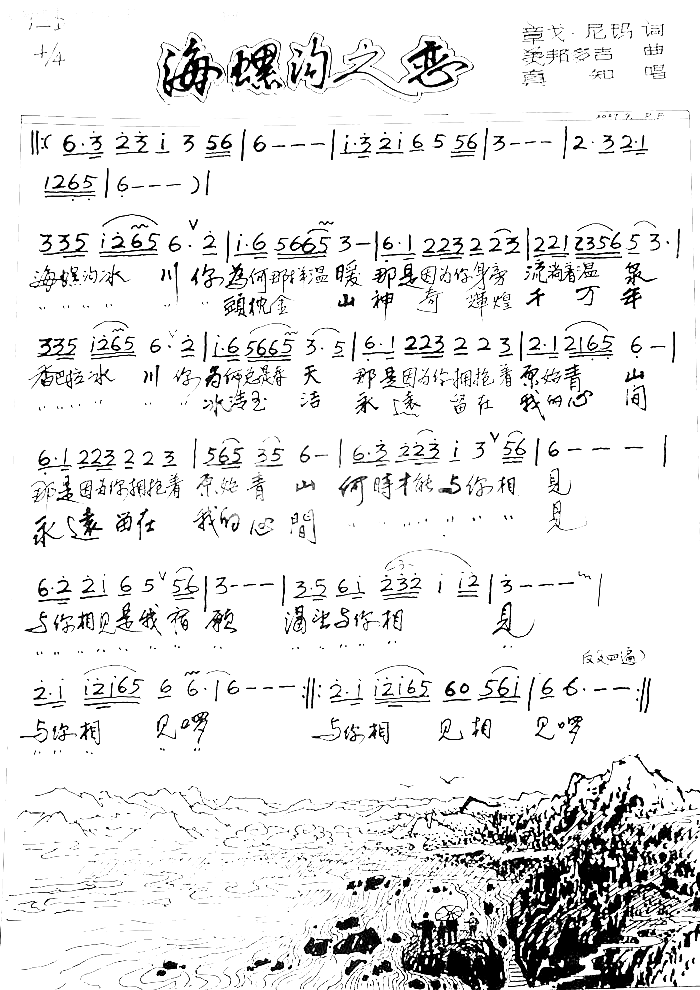 海螺沟之恋
章戈·尼玛 词
美邦多吉 曲
真知 唱
4/4
||:( 6·3 23 i 3 56 | 6 - - - | i·3 2i 6 5 56 | 3 - - - | 2·3 2·1
1265 | 6 - - - ) |
335 i265 6· 2 | i·6 5665 3 - | 6·1 223 2 23 | 221 2356 5 3· |
海螺沟冰 川 你 為何那样温 暖 那是因为你身旁 流淌着温 泉
" " " " " " 頭枕金 山 神奇 輝煌 千万年
335 i265 6· 2 | i·6 5665 3·5 | 6·1 223 2 2 3 | 2·1 2165 6 - |
香巴拉冰 川 你 天 那是因为你拥抱着 原始青 山
" " " " " " 冰清玉 洁 永遠 留在 我的心 间
6·1 223 2 2 3 | 565 35 6 - | 6·3 223 i 3 56 | 6 - - - |
那是因为你拥抱着 原始青 山 何時才能与你相 見
永遠 留在 我的心 間 " " " " " " 見
6·2 2i 6 5 56 | 3 - - - | 3·5 6i 232 i i2 | 3 - - - |
与你相见是我宿 願 与你相 見
" " " " " " " " " " " " " "
(反复四遍)
2·i i2i65 6 6· | 6 - - - :||: 2·i i2i65 60 56i | 6 6· - - :||
与你相 见啰 与你相 见相 见啰
" " " " "